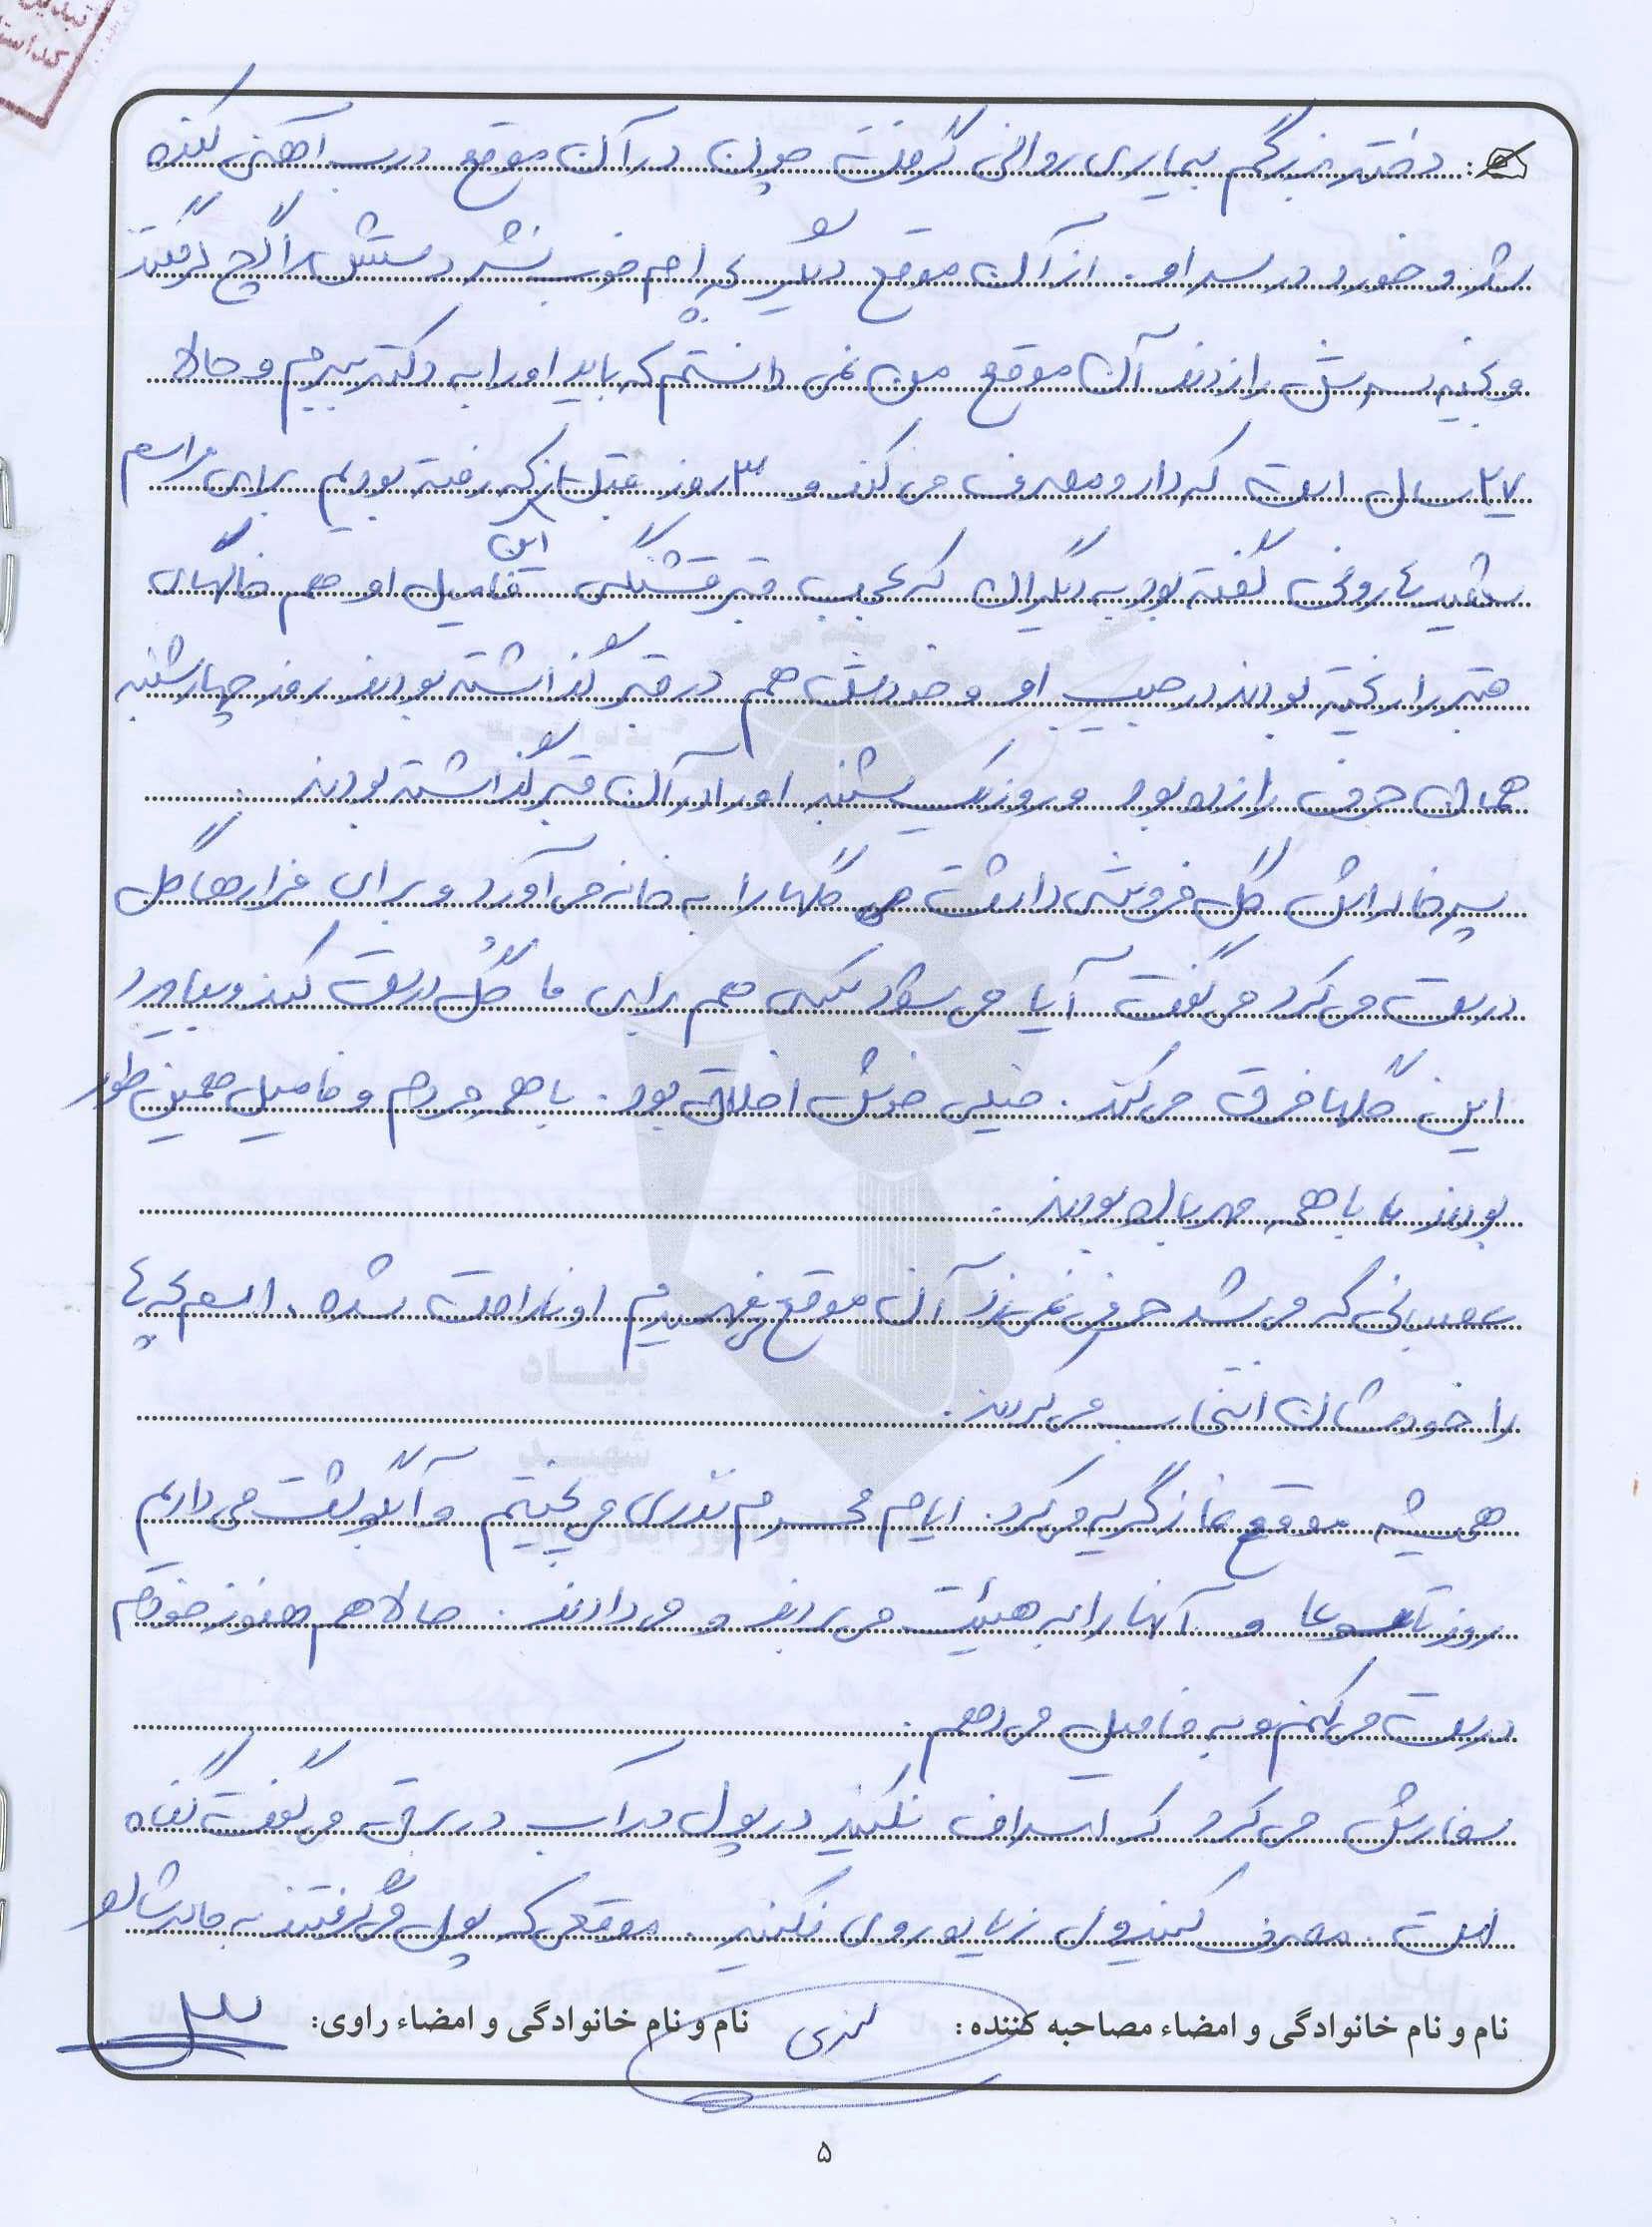 دختر بزرگم بیماری روانی گرفت چون در آن موقع درب آهنی کنده
شد و خورد در سر او. از آن موقع دیگر بچه ام خوب نشد دستش را گچ گرفتند
و بخیه سرش را زدند آن موقع من نمی دانستم که باید او را به دکتر ببرم و حالا
۲۷ سال است که دارو مصرف می کند و ۳ روز قبل از که رفته بودیم برای مراسم
شهید گفته بود به دیگران که عجب قبر قشنگی این فامیل او هم خاکهای
قبر را ریخته بودند در جیب او و خودش هم در قبر گذاشته بودند روز چهارشنبه
همان حرف را زده بود و روز یک شنبه او را در آن قبر گذاشته بودند.
پسرخاله اش گل فروشی داشت گلها را به خانه می آورد و برای مزارها گل
درست می کرد می گفت آیا می شود یکی هم برای ما گل درست کند و بیاورد
این گلها فرق می کند. خیلی خوش اخلاق بود. با همه مردم و فامیل همین طور
بودند با همه مهربان بودند.
عصبانی که می شد حرف نمی زد آن موقع می فهمیدم او ناراحت شده. اسم بچه ها
را خودشان انتخاب می کردند.
همیشه موقع نماز گریه می کرد. ایام محرم نذری می پختیم و آبگوشت می داریم
روز تاسوعا و آنها را به هیئت می بردند و می دادند. حالا هم هنوز خودم
درست می کنم و به فامیل می دهم.
سفارش می کرد که اسراف نکنید در پول در آب در برق می گفت گناه
است. مصرف کنید ولی زیاده روی نکنید. موقعی که پول می گرفتند به مادرشان
نام و نام خانوادگی و امضاء مصاحبه کننده: نام و نام خانوادگی و امضاء راوی:
۵